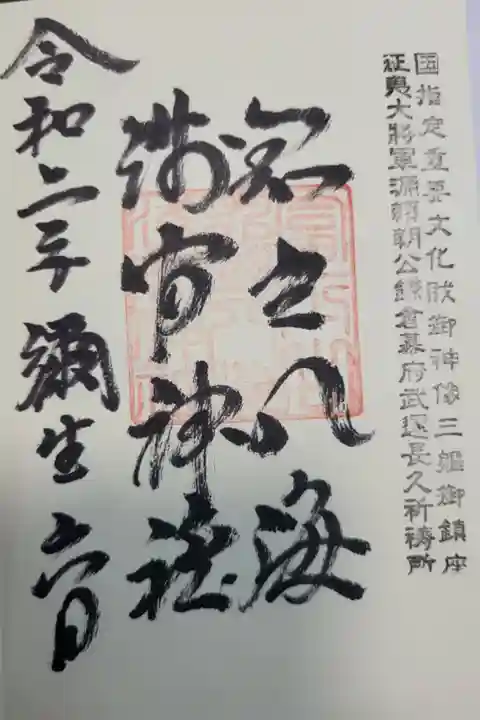 国指定重要文化財御神像三躯御鎮座
征夷大將軍源頼朝公鎌倉幕府武運長久祈祷所
之八海
神社
令和二年彌生六日